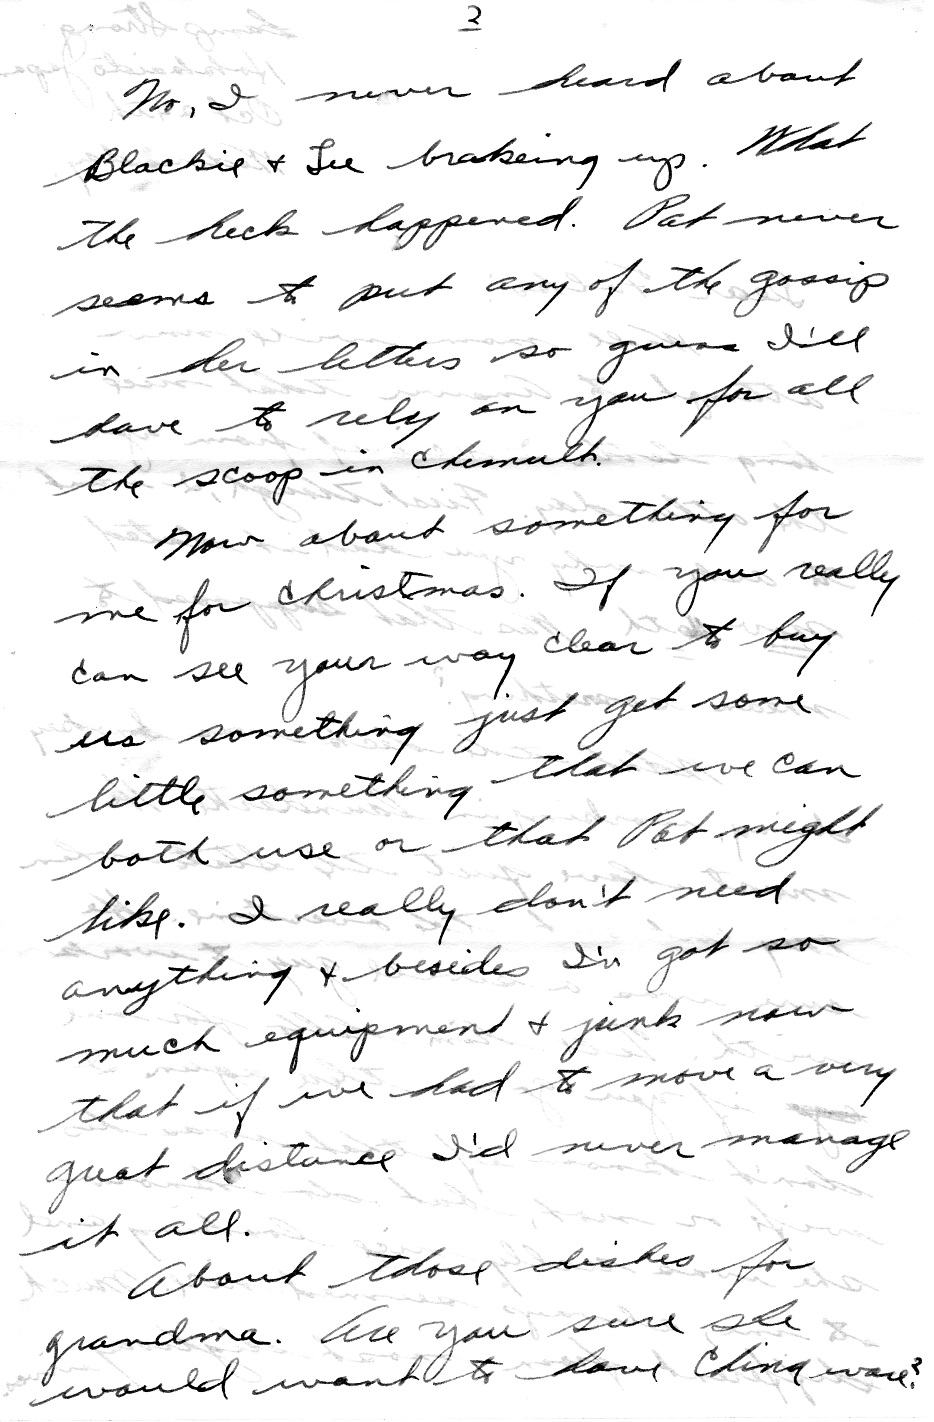 3
No, I never heard about
Blackie & Lee brakeing up. What
the heck happened. Pat never
seems to put any of the gossip
in her letters so guess I'll
have to rely on you for all
the scoop in Chemult.
Now about something for
me for Christmas. If you really
can see your way clear to buy
us something just get some
little something that we can
both use or that Pat might
like. I really don't need
anything & besides I'v got so
much equipment & junk now
that if we had to move a very
great distance I'd never manage
it all.
About those dishes for
grandma. Are you sure she
would want to have China ware?